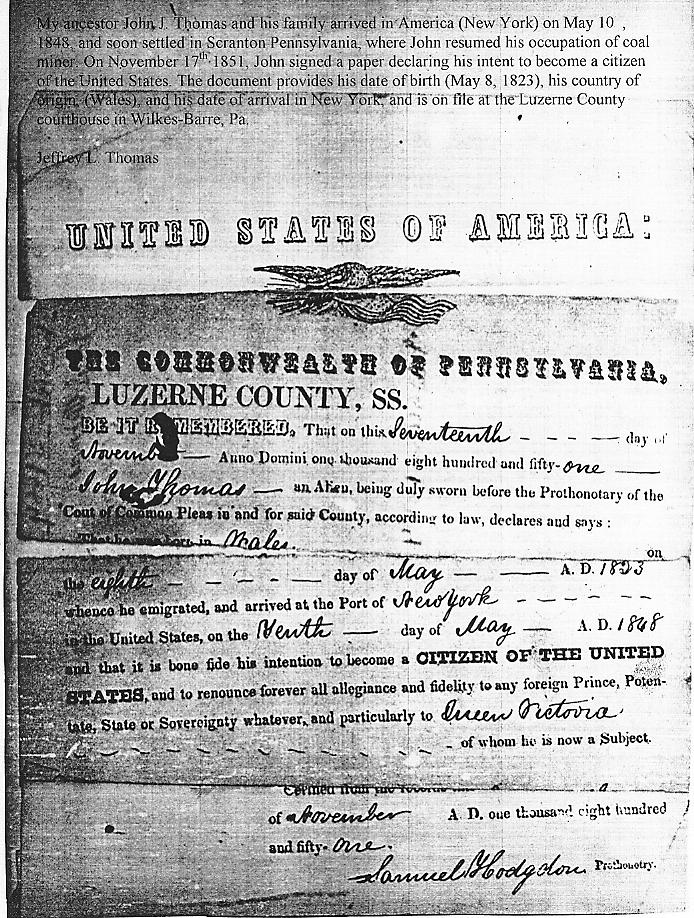 My ancestor John J. Thomas and his family arrived in America (New York) on May 10 ,
1848, and soon settled in Scranton Pennsylvania, where John resumed his occupation of coal
miner. On November 17th 1851, John signed a paper declaring his intent to become a citizen
of the United States. The document provides his date of birth (May 8, 1823), his country of
origin, (Wales), and his date of arrival in New York, and is on file at the Luzerne County
courthouse in Wilkes-Barre, Pa.
Jeffrey L. Thomas
UNITED STATES OF AMERICA:
THE COMMONWEALTH OF PENNSYLVANIA,
LUZERNE COUNTY, SS.
BE IT REMEMBERED, That on this Seventeenth day of
November Anno Domini one thousand eight hundred and fifty-one
John Thomas an Alien, being duly sworn before the Prothonotary of the
Court of Common Pleas in and for said County, according to law, declares and says :
That he was born in Wales. on
the eighth day of May A. D. 1823
whence he emigrated, and arrived at the Port of New York
in the United States, on the Tenth day of May A. D. 1848
and that it is bone fide his intention to become a CITIZEN OF THE UNITED
STATES, and to renounce forever all allegiance and fidelity to any foreign Prince, Poten-
tate, State or Sovereignty whatever, and particularly to Queen Victoria
of whom he is now a Subject.
Certified from the records
of November A. D. one thousand eight hundred
and fifty-one.
Samuel Hodgdon Prothonotry.